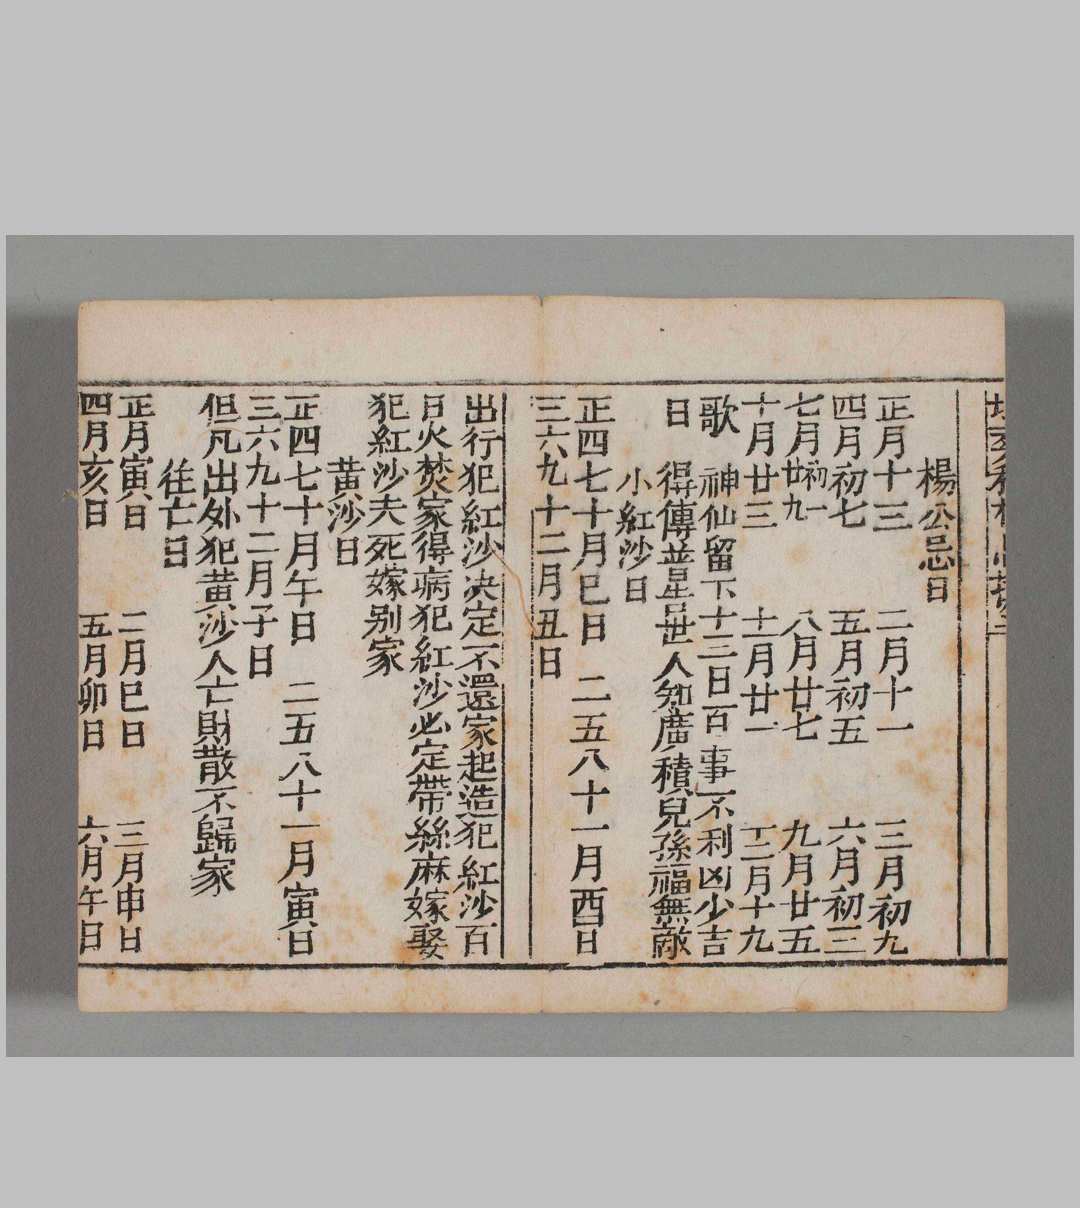 楊公忌日
正月十三　二月十一　三月初九
四月初七　五月初五　六月初三
七月初一廿九　八月廿七　九月廿五
十月廿三　十一月廿一　十二月十九
歌　神仙留下十三日百事不利凶少吉
日　得傳普星呂世人知廣積兒孫福無敵
小紅沙日
正四七十月巳日　二五八十一月酉日
三六九十二月丑日
出行犯紅沙决定不還家起造犯紅沙百
日火焚家得病犯紅沙必定帶絲麻嫁娶
犯紅沙夫死嫁别家
黄沙日
正四七十月午日　二五八十一月寅日
三六九十二月子日
但凡出外犯黄沙人亡財散不歸家
往亡日
正月寅日　二月巳日　三月申日
四月亥日　五月卯日　六月午日